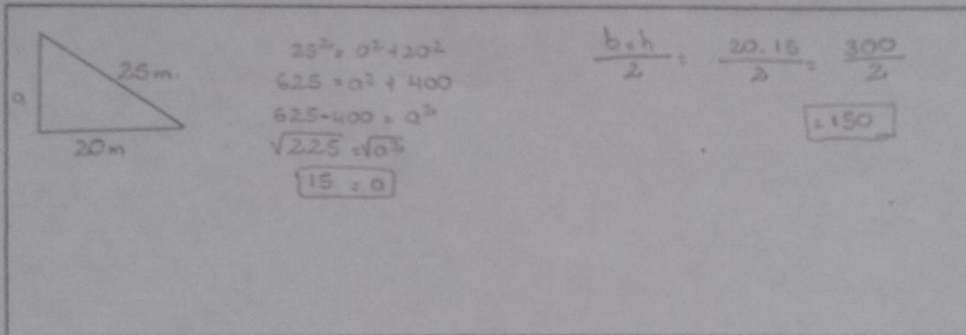 a
25m.
20m
25² = a² + 20²
625 = a² + 400
625-400 = a²
√225 = √a²
15 = a
b.h/2 = 20.15/2 = 300/2
= 150